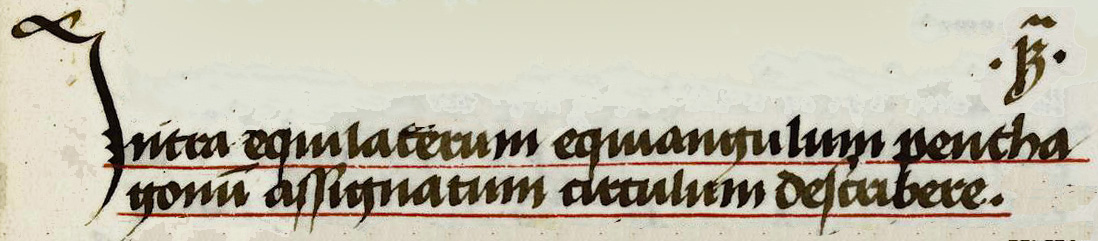 ·13·
Intra equilaterum equiangulum pentha
gonū assignatum circulum describere.